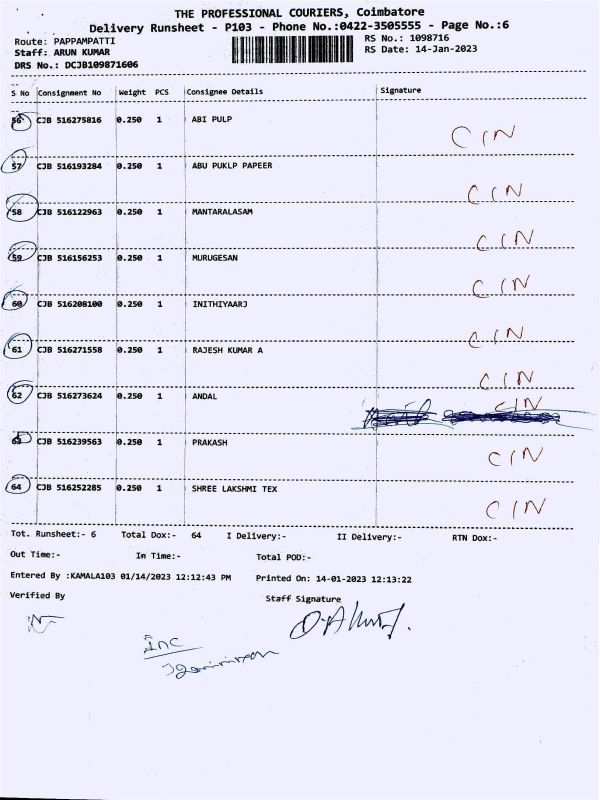 THE PROFESSIONAL COURIERS, Coimbatore
Delivery Runsheet - P103 - Phone No.:0422-3505555 - Page No.:6
Route: PAPPAMPATTI RS No.: 1098716
Staff: ARUN KUMAR RS Date: 14-Jan-2023
DRS No.: DCJB109871606
S No Consignment No Weight PCS Consignee Details Signature
56 CJB 516275816 0.250 1 ABI PULP
CIN
57 CJB 516193284 0.250 1 ABU PUKLP PAPEER
CIN
58 CJB 516122963 0.250 1 MANTARALASAM
CIN
59 CJB 516156253 0.250 1 MURUGESAN
CIN
60 CJB 516208100 0.250 1 INITHIYAARJ
CIN
61 CJB 516271558 0.250 1 RAJESH KUMAR A
CIN
62 CJB 516273624 0.250 1 ANDAL
CIN
63 CJB 516239563 0.250 1 PRAKASH
CIN
64 CJB 516252285 0.250 1 SHREE LAKSHMI TEX
CIN
Tot. Runsheet:- 6 Total Dox:- 64 I Delivery:- II Delivery:- RTN Dox:-
Out Time:- In Time:- Total POD:-
Entered By :KAMALA103 01/14/2023 12:12:43 PM Printed On: 14-01-2023 12:13:22
Verified By Staff Signature